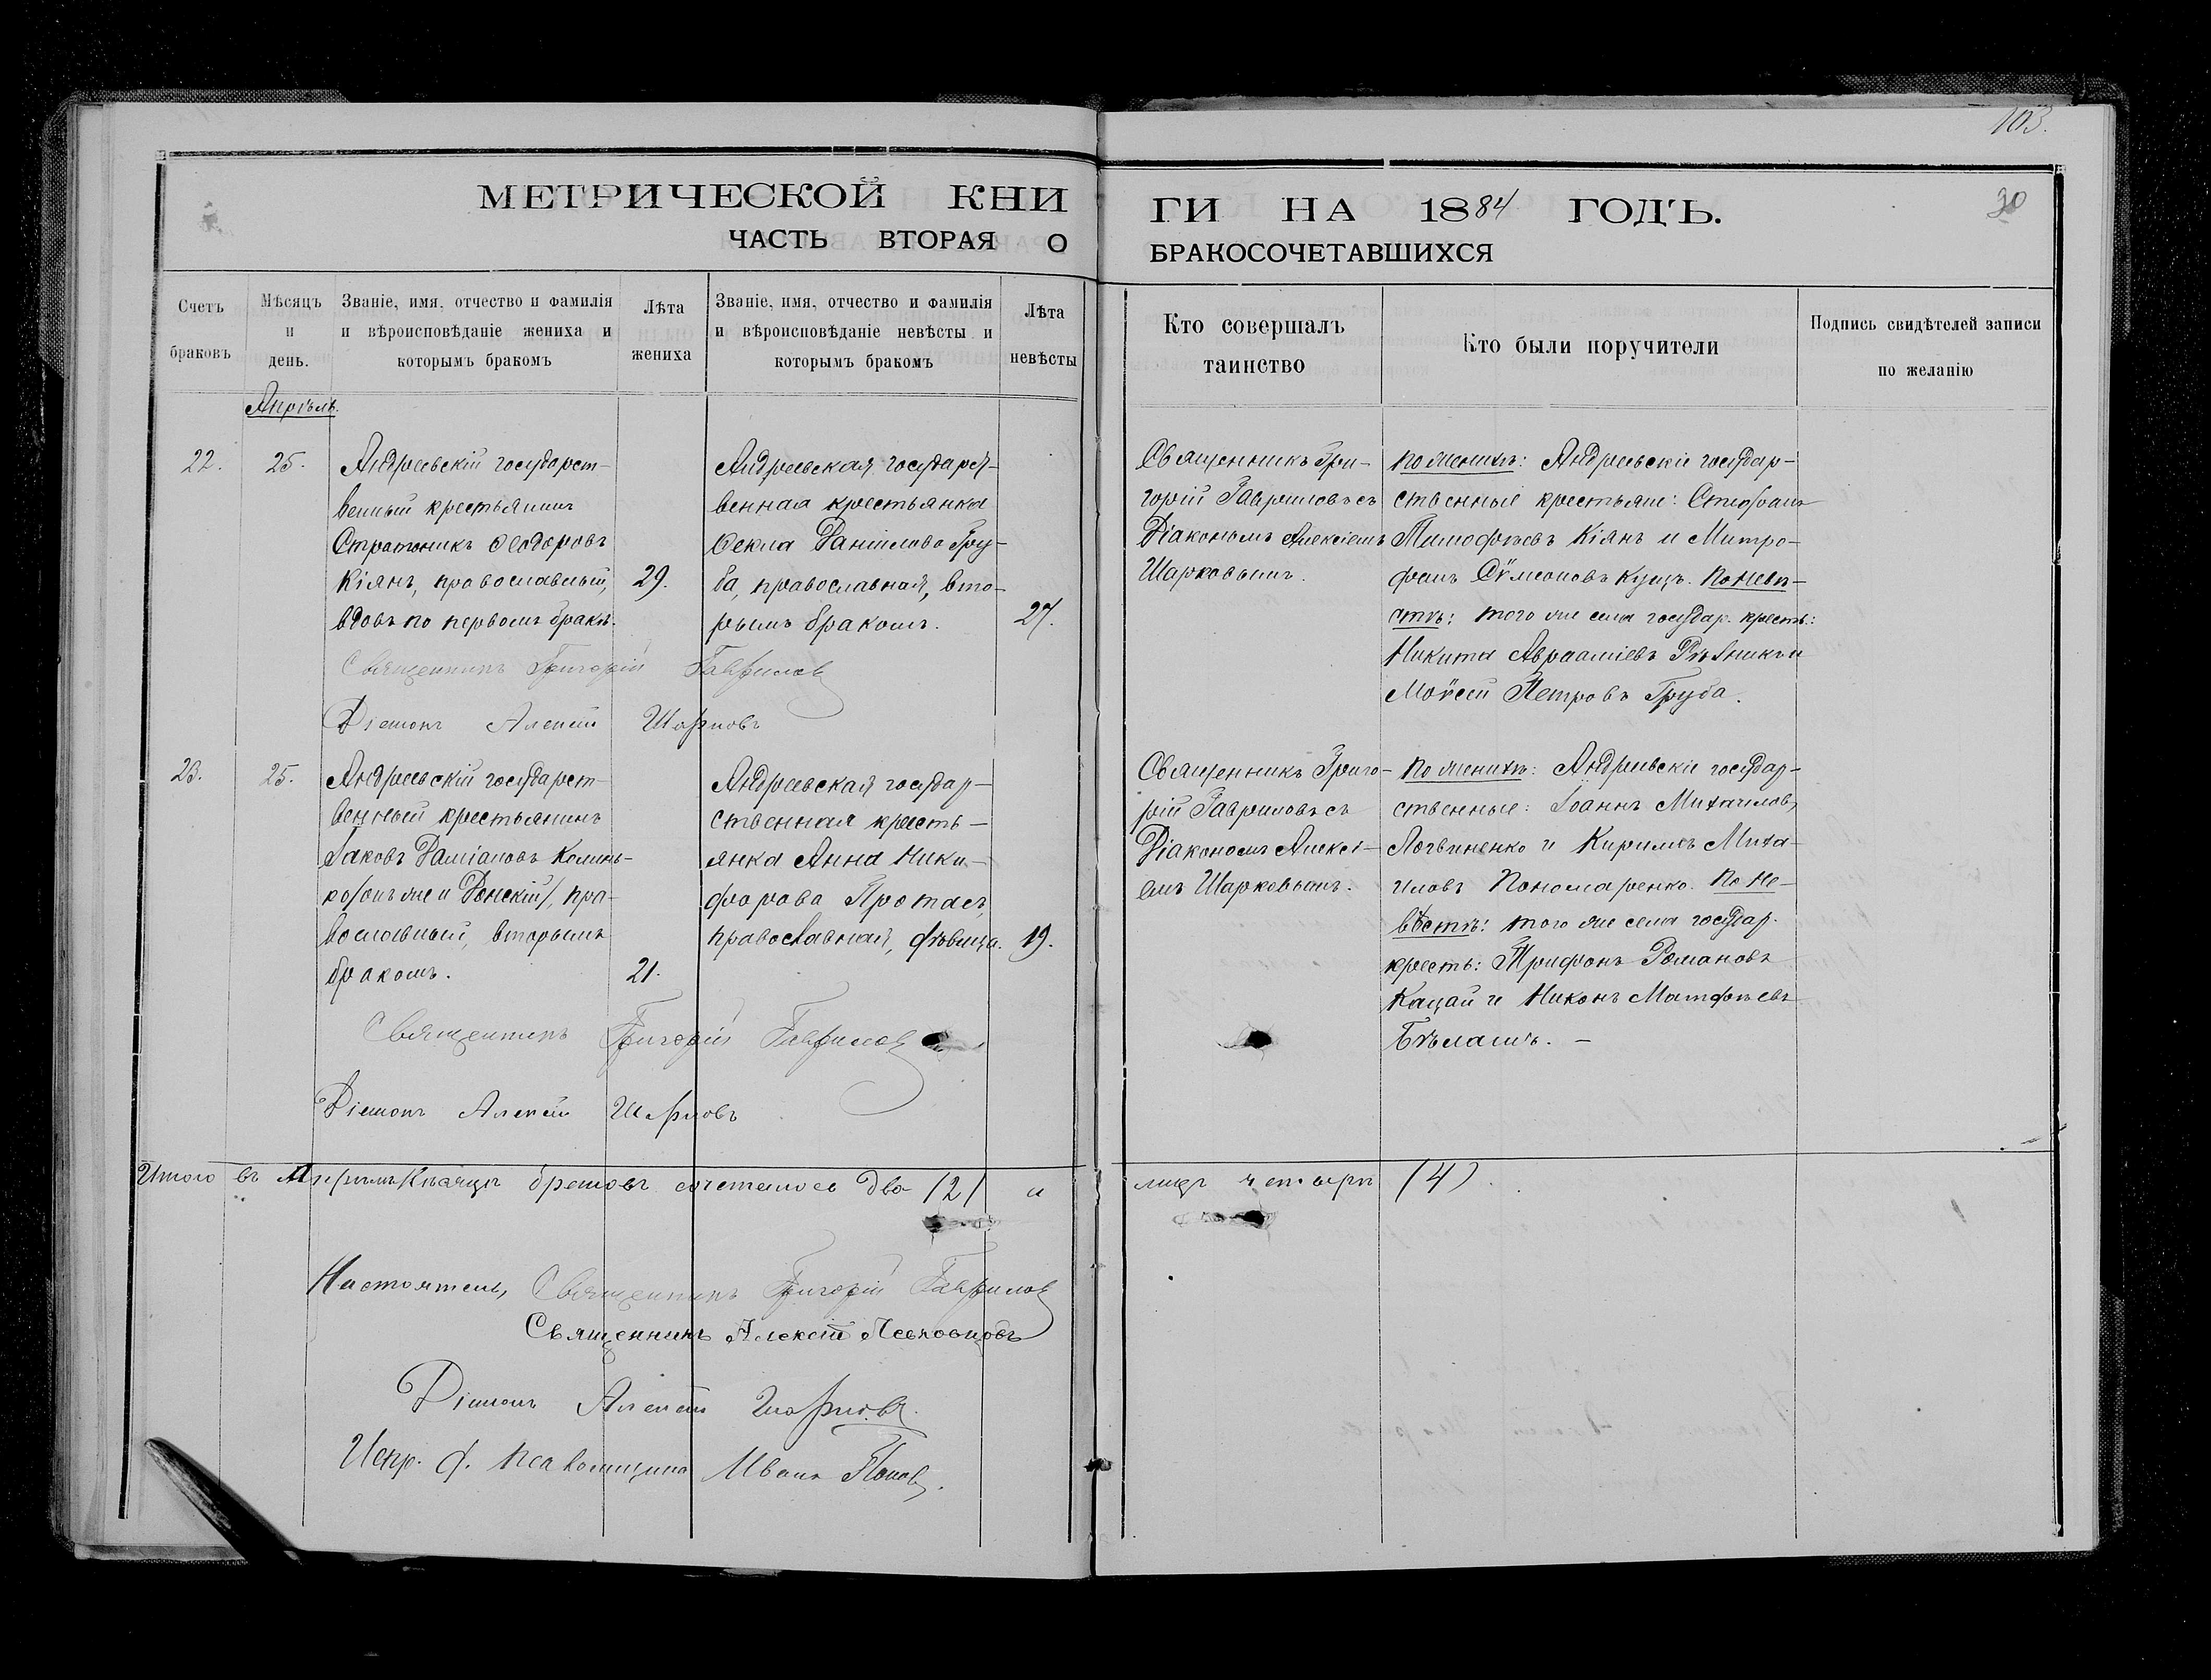 103.
МЕТРИЧЕСКОЙ КНИ
ГИ НА 1884 ГОДЪ.
30
ЧАСТЬ ВТОРАЯ О
БРАКОСОЧЕТАВШИХСЯ
Счетъ
браковъ
Мѣсяцъ
и
день.
Званіе, имя, отчество и фамилія
и вѣроисповѣданіе жениха и
которымъ бракомъ
Лѣта
жениха
Званіе, имя, отчество и фамилія
и вѣроисповѣданіе невѣсты и
которымъ бракомъ
Лѣта
невѣсты
Кто совершалъ
таинство
Кто были поручители
Подпись свидѣтелей записи
по желанію
Апрѣль.
22.
25.
Андреевскій государст-
венный крестьянинъ
Стратоникъ Ѳеодоровъ
Кіянъ, православный,
вдовъ по первомъ бракѣ.
29.
Андреевская государст-
венная крестьянка
Ѳекла Даніилова Гру-
ба, православная, вто-
рымъ бракомъ.
27.
Священникъ Гри-
горій Гавриловъ съ
Діакономъ Алексіемъ
Шарковымъ.
По женихѣ: Андреевскіе государ-
ственные крестьяне: Стефанъ
Тимофѣевъ Кіянъ и Митро-
фанъ Сѵмеоновъ Куцъ. По невѣ-
стѣ: того же села государ. кресть:
Никита Авраамiевъ Рѣзникъ и
Моѵсей Петровъ Груба.
Священникъ Григорій Гаврилов
Діаконъ Алексій Шарковъ
23.
25.
Андреевскій государст-
венный крестьянинъ
Іаковъ Даміановъ Колинь-
ко/онъ же и Донскій/, пра-
вославный, вторымъ
бракомъ.
21.
Андреевская государ-
ственная кресть-
янка Анна Ники-
форова Протасъ,
православная, дѣвица.
19.
Священникъ Григо-
рій Гавриловъ съ
Діакономъ Алексі-
емъ Шарковымъ.
По женихѣ: Андреевскіе государ-
ственные: Іоаннъ Михаиловъ
Логвиненко и Кириллъ Миха-
иловъ Пономаренко. По не-
вѣстѣ: того же села государ.
кресть: Трифонъ Романовъ
Кацай и Никонъ Матфѣевъ
Бѣлашъ. –
Священникъ Григорій Гаврилов
Діаконъ Алексій Шарковъ
Итого въ Апрѣлѣ мѣсяцѣ браковъ сочеталось два /2/ и
лицъ четыре (4).
Настоятель, Священникъ Григорій Гаврилов
Священникъ Алексій
Діаконъ Алексій Шарковъ.
Испр. д. псаломщика Иванъ Поповъ.